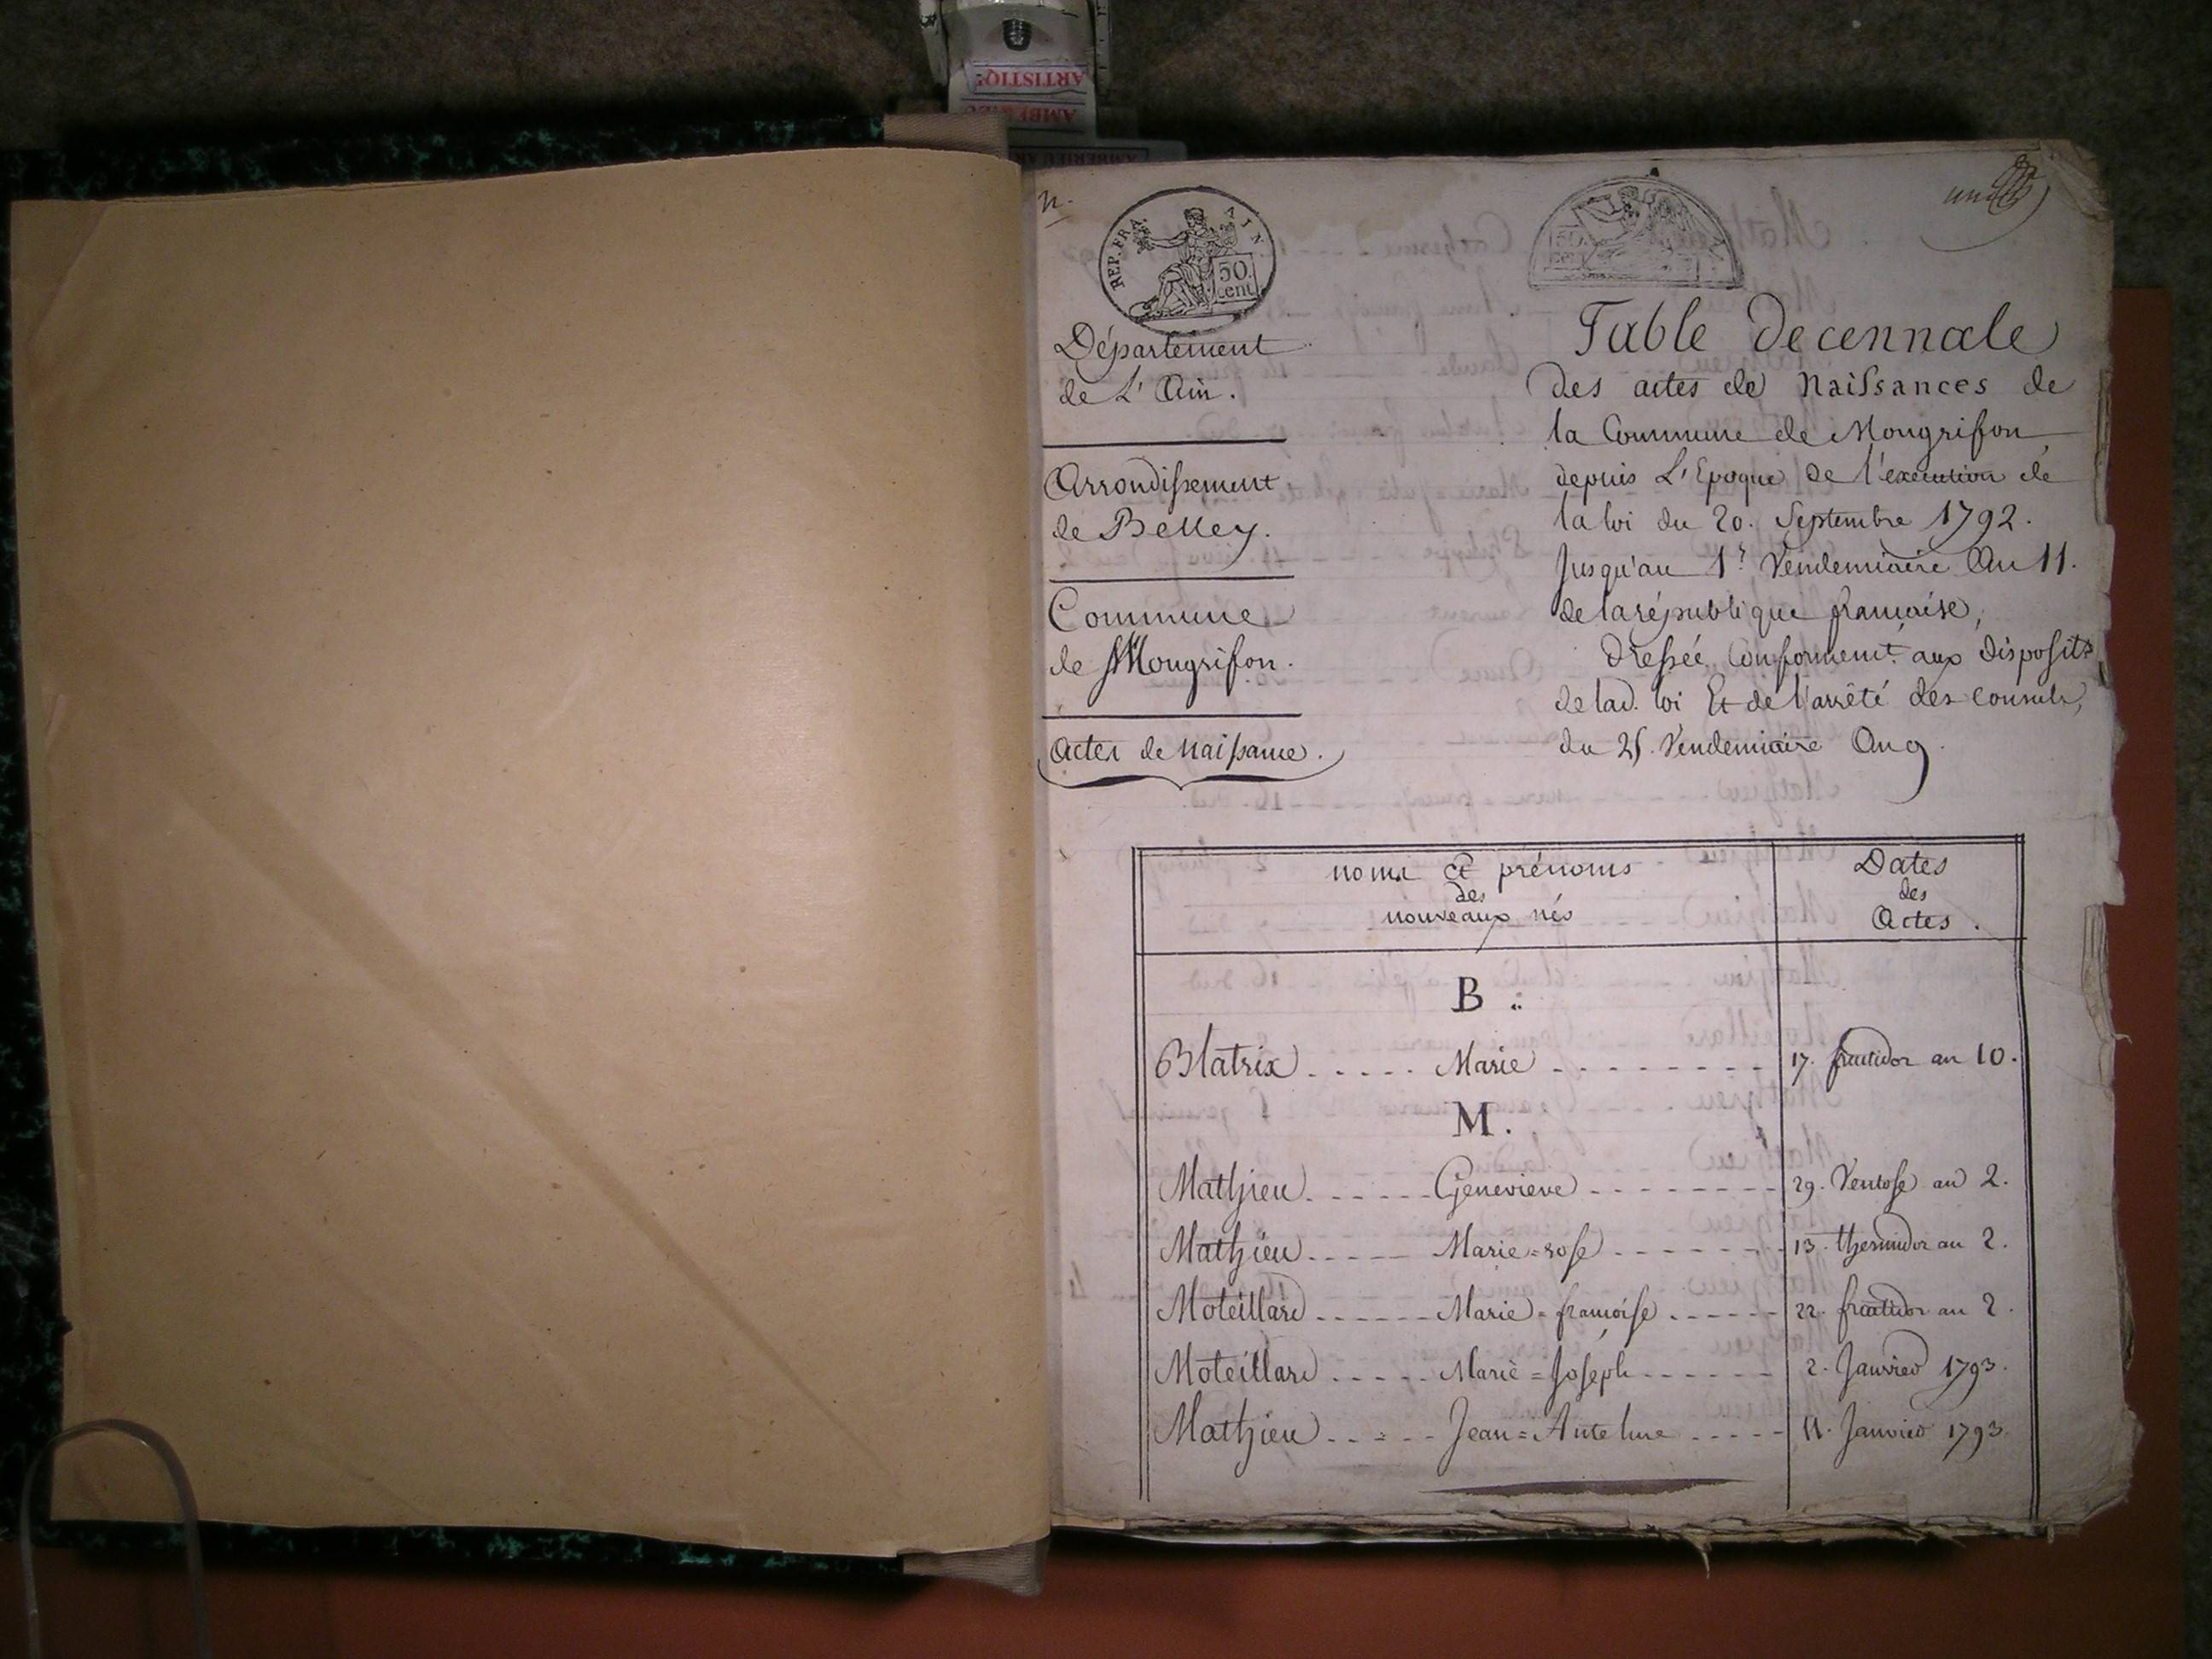 ARTISTIQ
N.
REP. FRA. AIN
50.
cent
150.
cent
Département
de L'Ain.
Arrondissement
de Belley.
Commune
de Mongrifon.
Actes de naissance.
Table decennale
des actes de naissances de
la Commune de Mongrifon
depuis L'Epoque de l'execution de
la loi du 20. Septembre 1792.
Jusqu'au 1r. Vendemiaire An 11.
de la république francaise,
Dressée conformemt. aux disposits
de lad. loi Et de l'arrêté des consuls,
du 25. Vendemiaire An 9
noms et prénoms
des
nouveaux nés
Dates
des
Actes.
B :
Blatrix ..... Marie ........ 17. fructidor an 10.
M.
Mathieu ...... Genevieve ........ 29. Ventose an 2.
Mathieu ...... Marie=rose ....... 13. thermidor an 2.
Moteillard ...... Marie=francoise ...... 22. fructidor an 2.
Moteillard ..... Marie=Joseph ...... 2. Janvier 1793.
Mathieu ..... Jean=Antelme ..... 11. Janvier 1793.